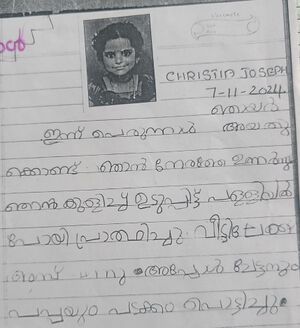 CHRISTIIA JOSEPH
7-11-2024
ഇന്ന് പെരുന്നാൾ ആയതു
ക്കൊണ്ട് ഞാൻ നേരത്തെ ഉണർന്നു
ഞാൻ കുളിച്ച് ഉടുപ്പിട്ട് പള്ളിയിൽ
പോയി പ്രാത്ഥിച്ചു. വീട്ടിലേക്ക്
അപ്പോൾ ചേട്ടനും
പപ്പയും പടക്കം പൊട്ടിച്ചു.